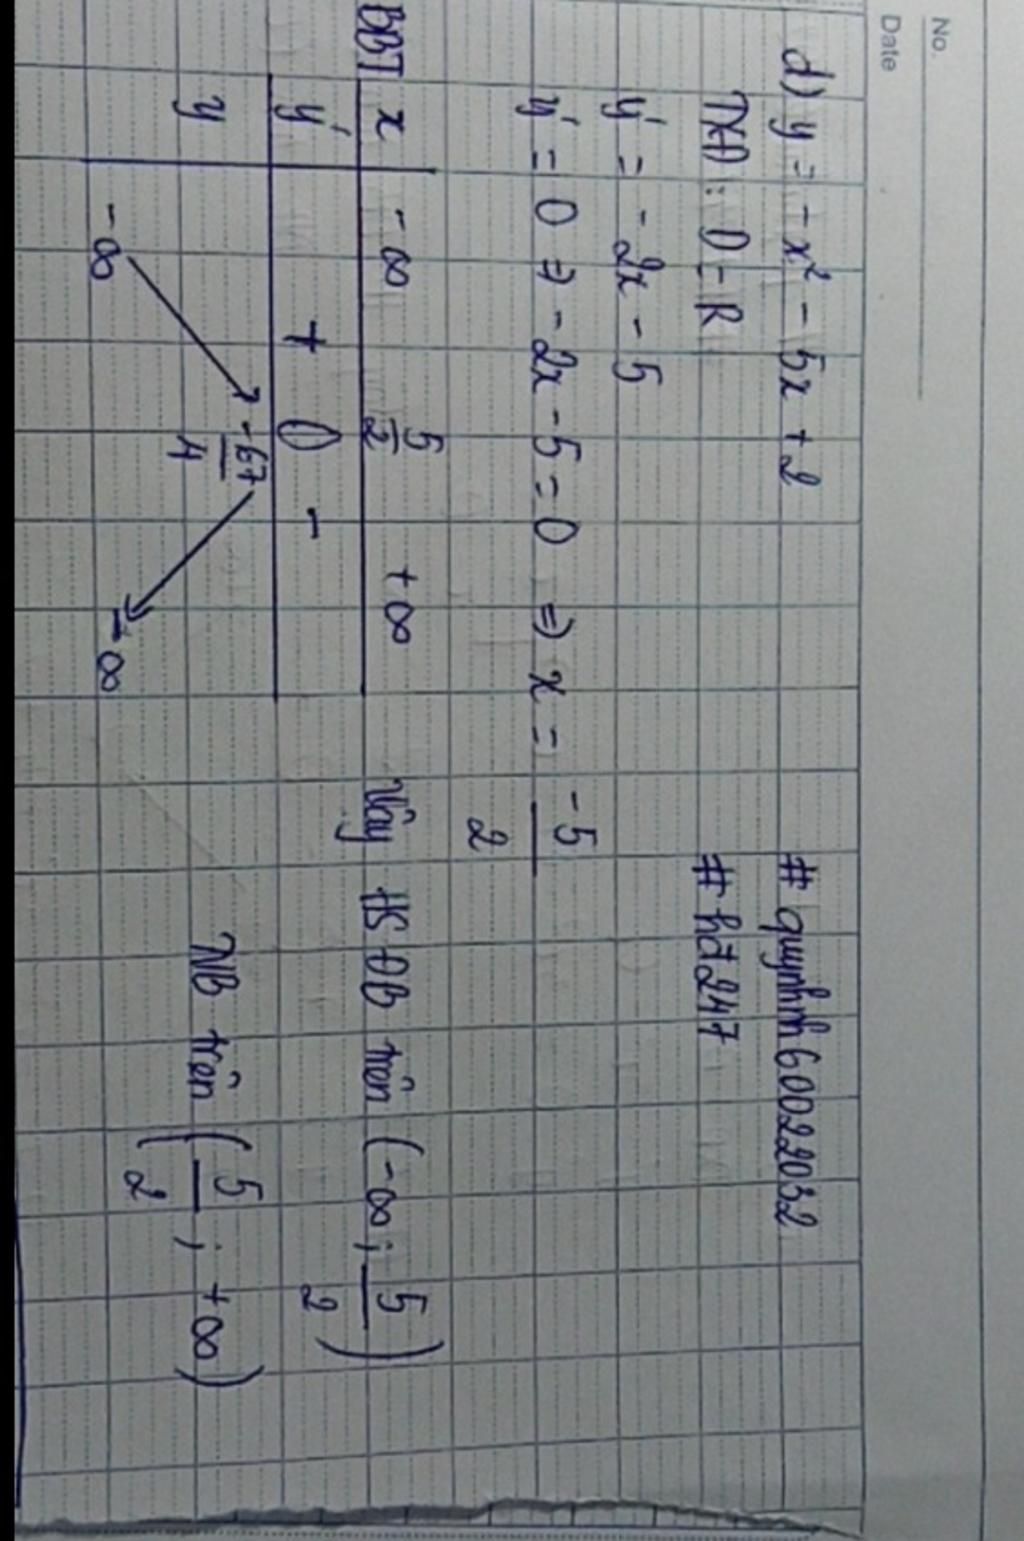 No.
Date
d) y = - x² - 5x + 2 # quynhth60022032
TXĐ: D = R # hd247
y' = - 2x - 5
y' = 0 => - 2x - 5 = 0 => x = -5/2
BBT x -∞ 5/2 +∞
y' + 0 -
y -∞ -67/4 -∞
Vậy HS ĐB trên (-∞; 5/2)
NB trên (5/2; +∞)